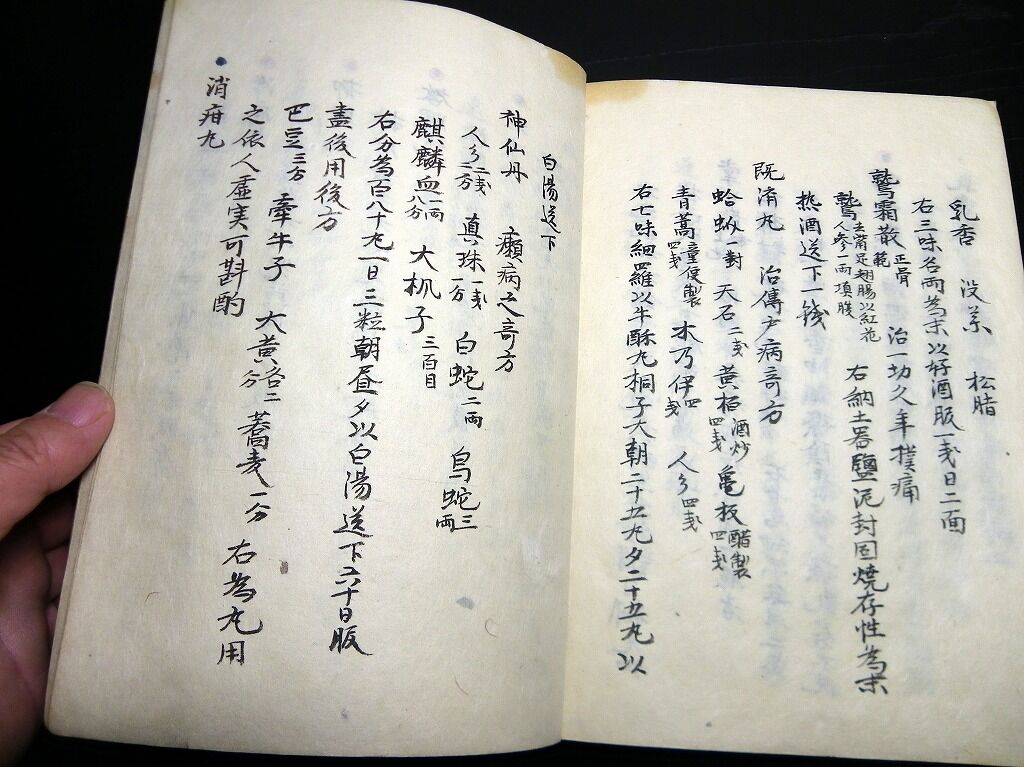 乳香 没薬 松脂
右三味各両為末以好酒服一戔日二面
鷲霜散 正骨範 治一切久年撲痛
鷲 去觜足翅腸以紅花人参一両項腹 右納土器鹽泥封固焼存性為末
热酒送下一錢
既済丸 治傳尸病奇方
蛤蚧一對 天石二戔 黄栢酒炒四戔 亀板醋製四戔
青蒿童便製四戔 木乃伊四戔 人參四戔
右七味細羅以牛酥丸桐子大朝二十五丸夕二十五丸以
白湯送下
神仙丹 癩病之奇方
人參二戔二分 真珠一戔一分 白蛇二両 烏蛇三両
麒麟血一両八分 大机子三百目
右分為百八十丸一日三粒朝昼夕以白湯送下六十日服
盡後用後方
巴豆三方 牽牛子 大黄各二分 蕎麦一分 右為丸用
之依人虚実可斟酌
消疳丸